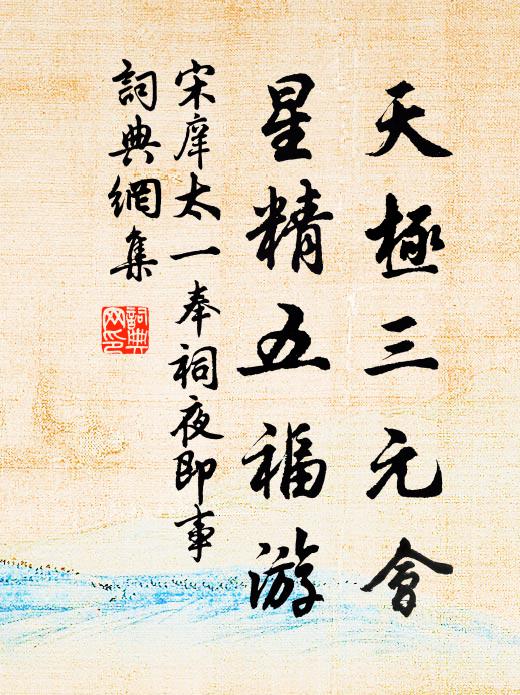 天極三元會
星精五福游
宋庠太一奉祠夜即事
詞典網集
詞典
网印